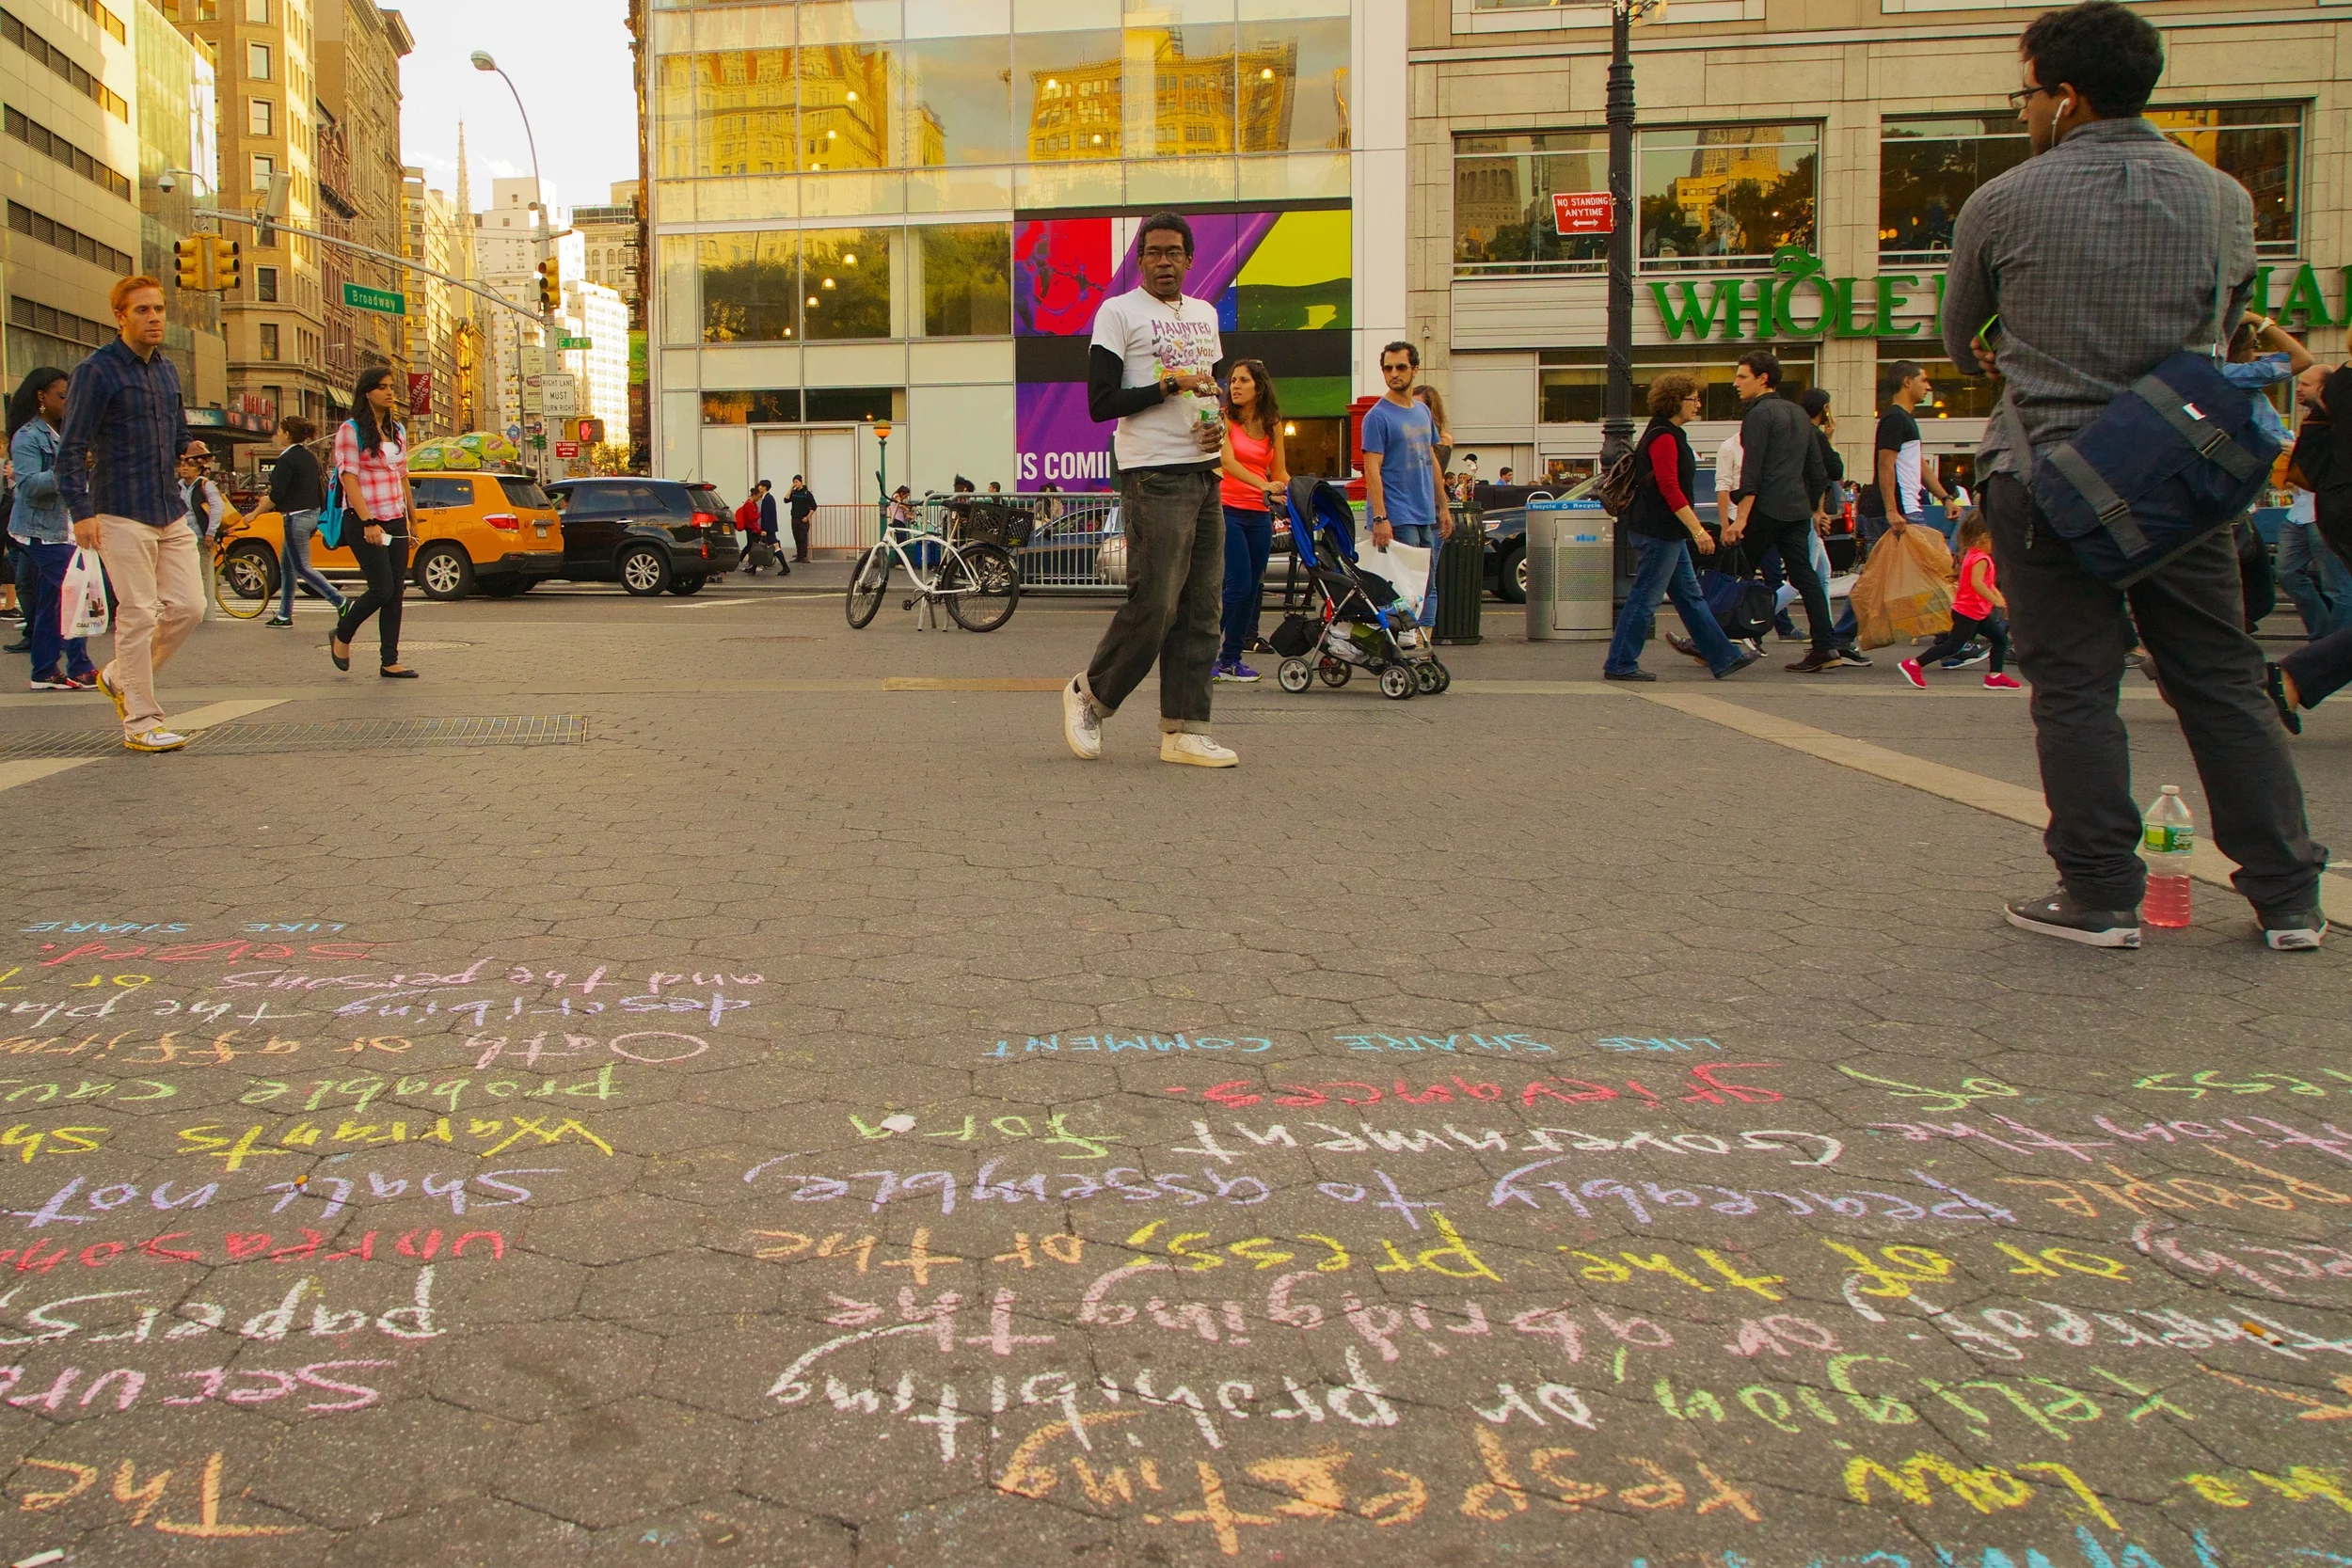 Broadway
E 14 ST
RIGHT LANE
MUST
TURN RIGHT
NO STANDING
ANYTIME
WHOLE
HAUNTED
IS COMI
Recycle
Recycle
Law
respecting
religion, or prohibiting
thereof; or abridging the
or of the press; or the
people peaceably to assemble,
the Government for a
ess of grievances.
LIKE SHARE COMMENT
The
Secure
papers,
unreason
Shall not
Warrants sh
probable caus
Oath or affirm
describing the pla
and the persons or
seized.
LIKE SHARE